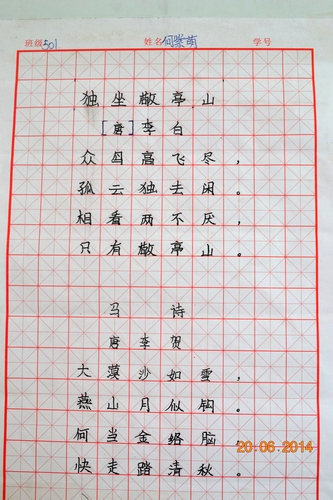 班级 501 姓名 何紫萌 学号
独坐敬亭山
[唐]李白
众鸟高飞尽，
孤云独去闲。
相看两不厌，
只有敬亭山。
马诗
唐李贺
大漠沙如雪，
燕山月似钩。
何当金络脑，
快走踏清秋。
20.06.2014